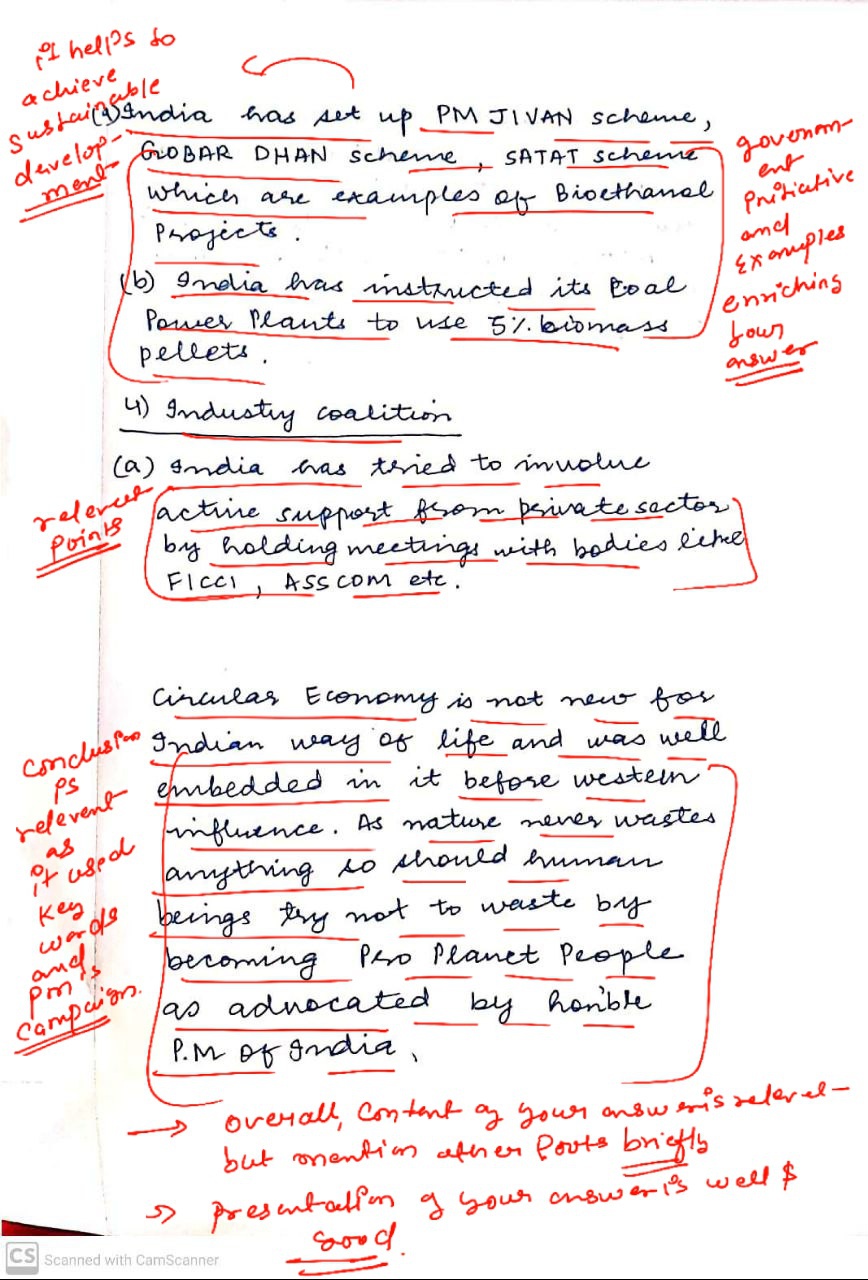 it helps to
achieve
sustainable
develop-
ment
(a) India has set up PM JIVAN scheme,
GOBAR DHAN scheme, SATAT scheme
which are examples of Bioethanol
Projects.
(b) India has instructed its Coal
Power Plants to use 5% biomass
pellets.
governm-
ent
initiative
and
Examples
enriching
your
answer
4) Industry coalition
(a) India has tried to involve
active support from private sector
by holding meetings with bodies like
FICCI, ASSCOM etc.
relevent
points
Circular Economy is not new for
Indian way of life and was well
embedded in it before western
influence. As nature never wastes
anything so should human
beings try not to waste by
becoming Pro Planet People
as advocated by hon'ble
P.M of India.
conclusion
is
relevent
as
it used
key
words
and
PM's
campaign.
→ overall, content of your answer is relevel-
but mention other Points briefly
→ presentation of your answer is well &
good.
CS Scanned with CamScanner